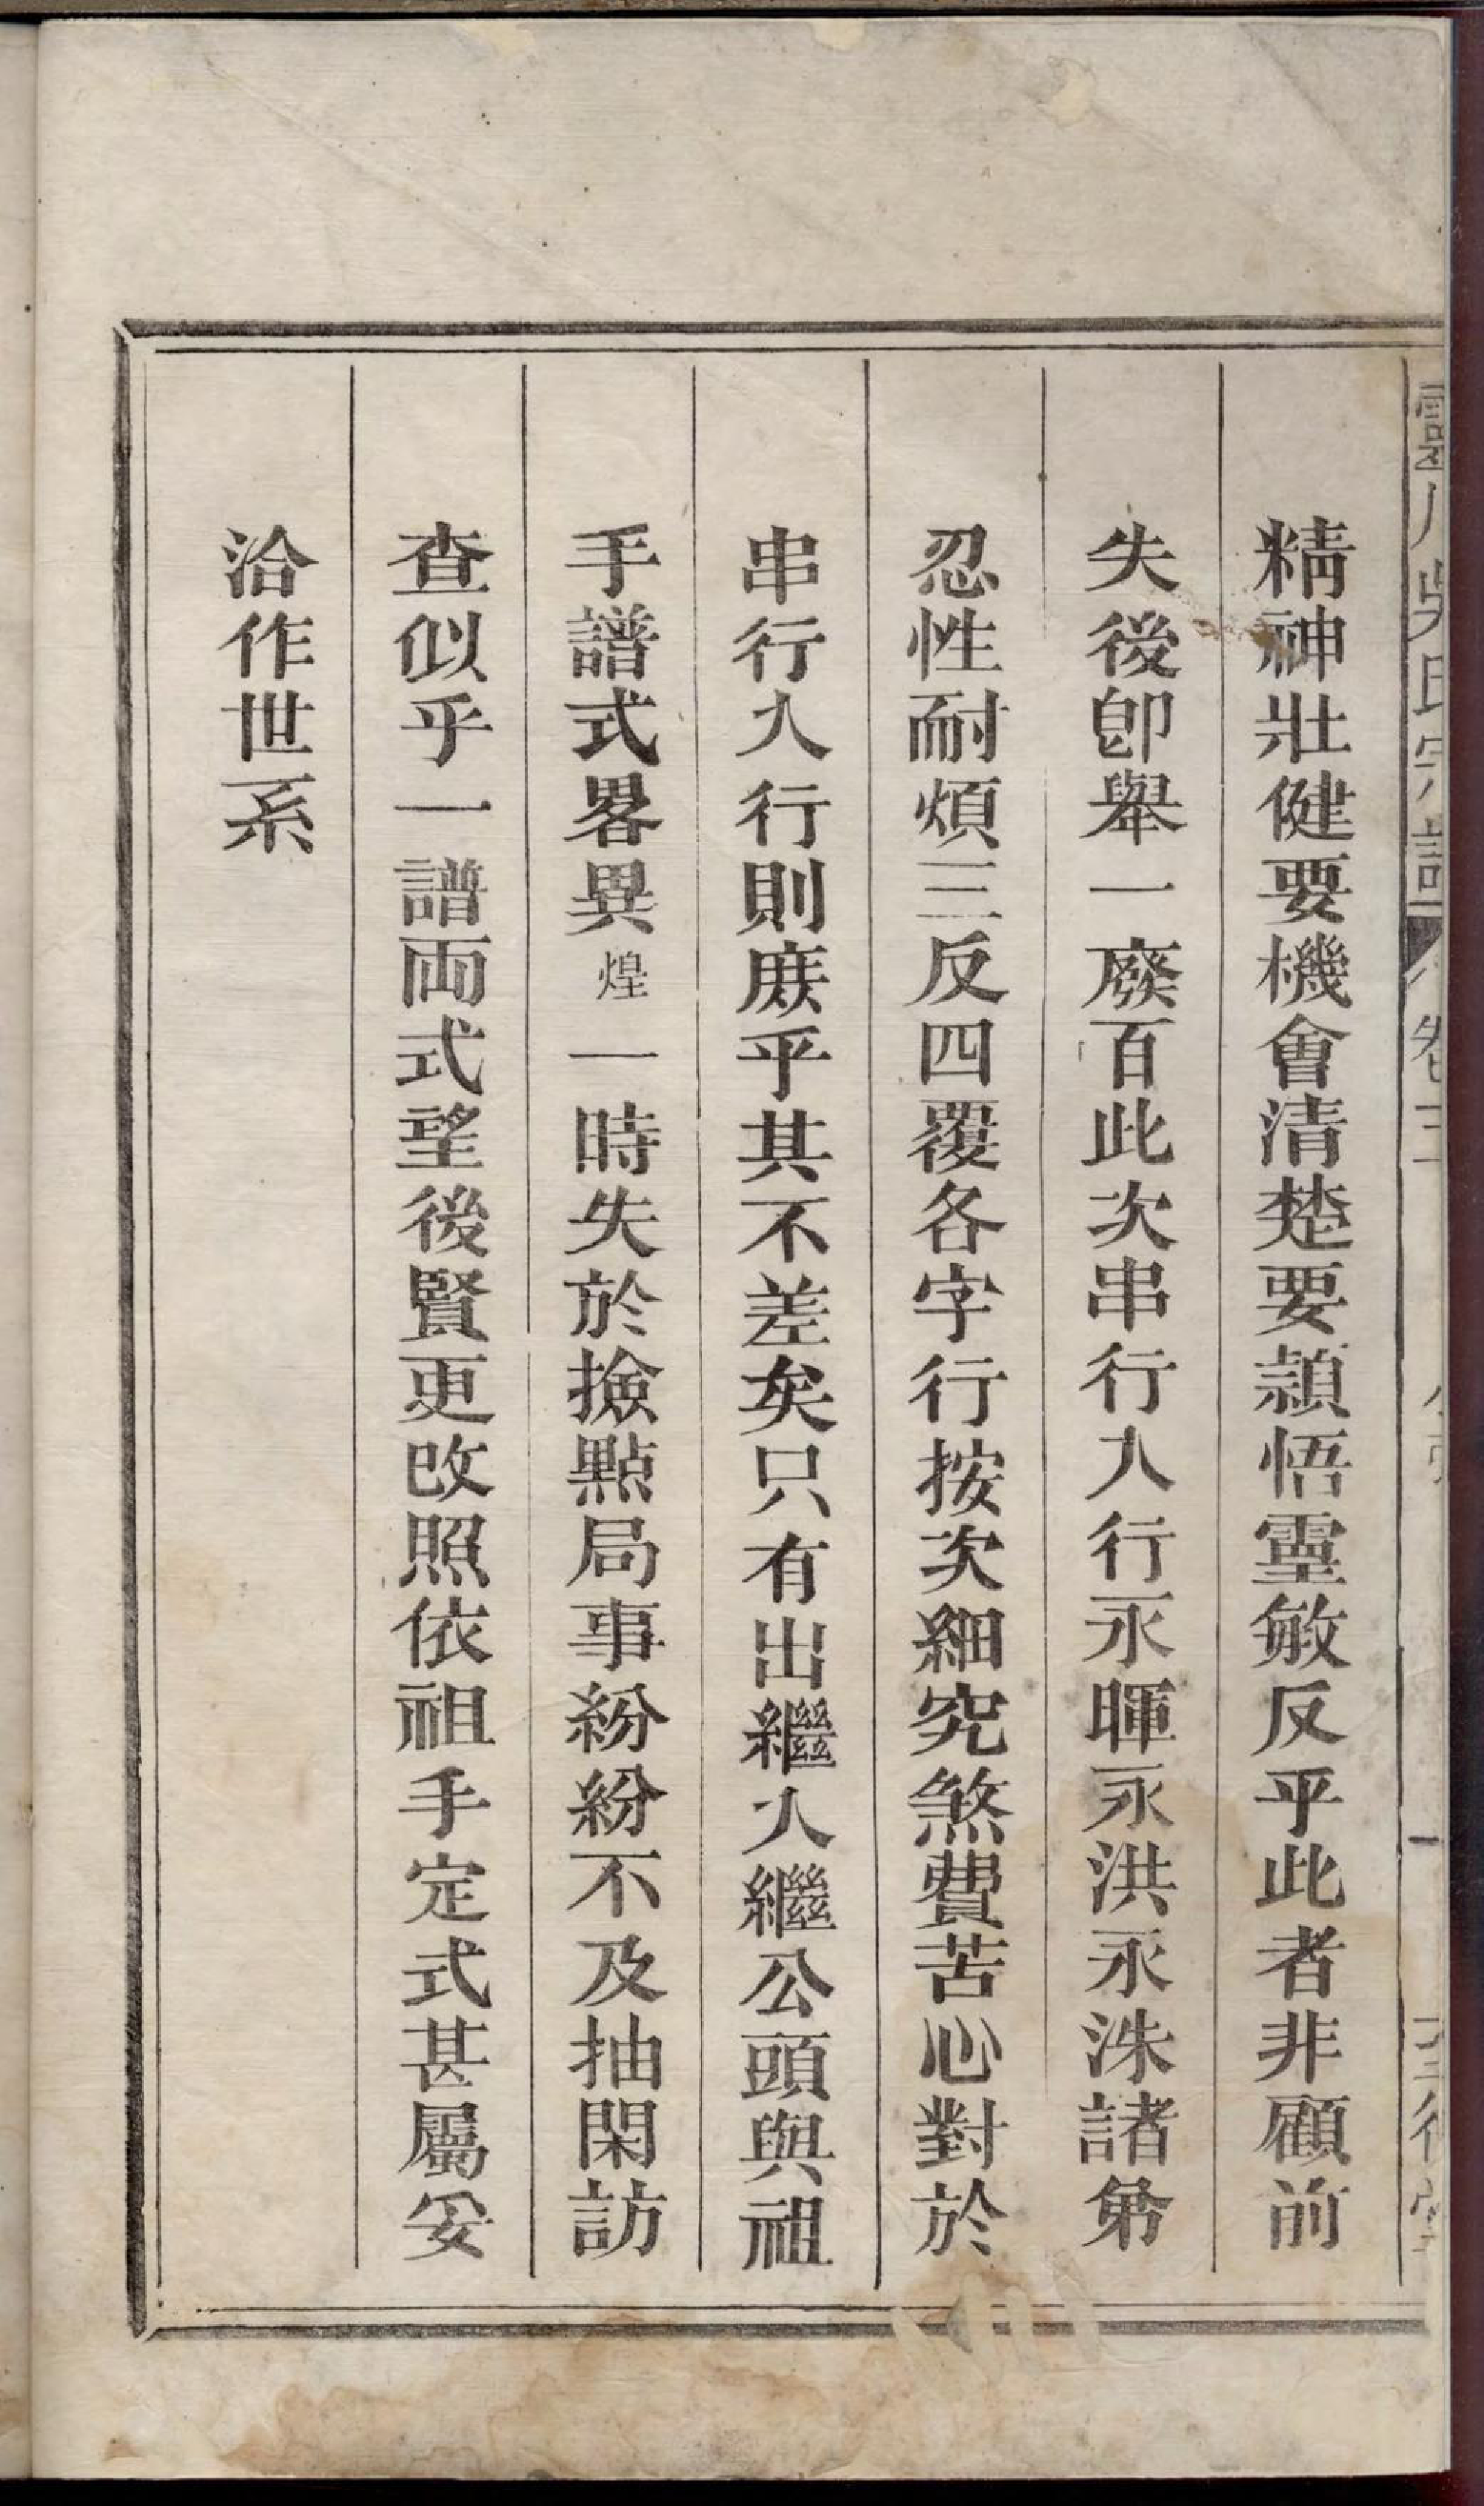 精神壯健要機會清楚要頴悟靈敏反乎此者非顧前
失後卽舉一廢百此次串行人行永暉永洪永洙諸弟
忍性耐煩三反四覆各字行按次細究煞費苦心對於
串行人行則庶乎其不差矣只有出繼人繼公頭與祖
手譜式畧異煌一時失於撿點局事紛紛不及抽閑訪
查似乎一譜両式望後賢更改照依祖手定式甚屬妥
洽作世系